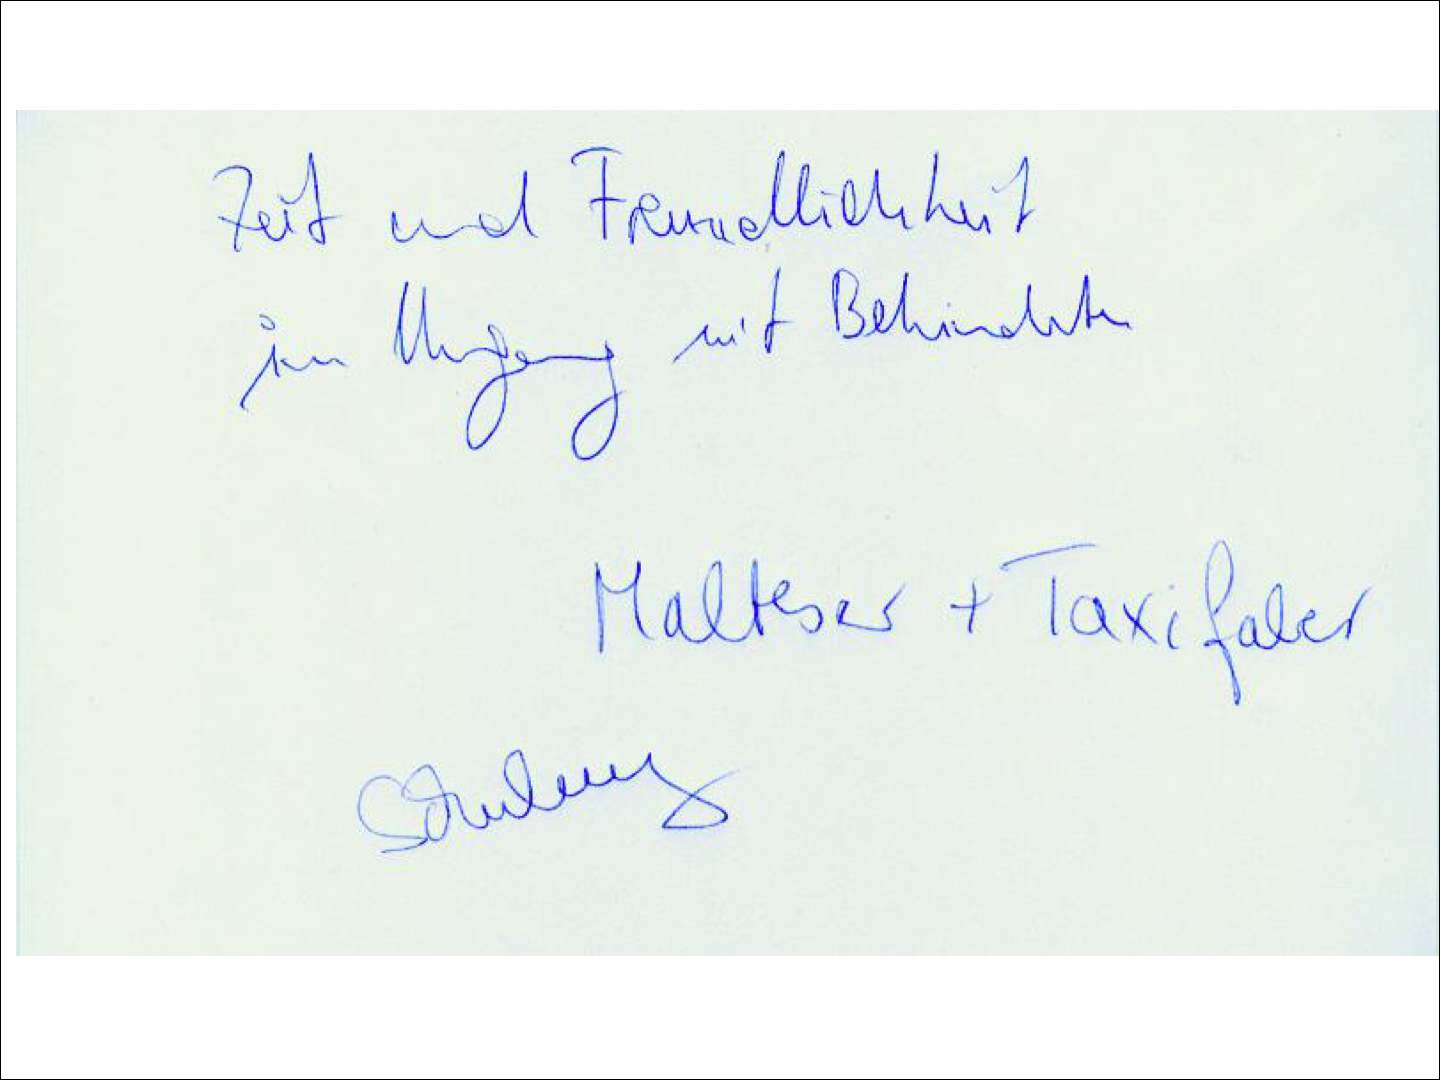 Zeit und Freundlichkeit
im Umgang mit Behinderten
Malteser + Taxifahrer
Schulung